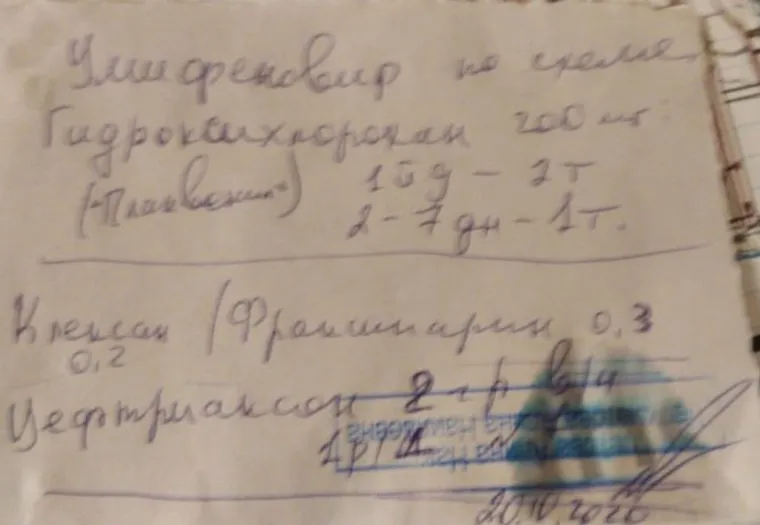 Умифеновир по схеме
Гидроксихлорохин 200 мг
1й д - 2т
("Плаквенил")
2 - 7 дн - 1т.
Клексан / Фраксипарин 0,3
0,2
Цефтриаксон 2 гр в/м
1 р/д
20.10.2020